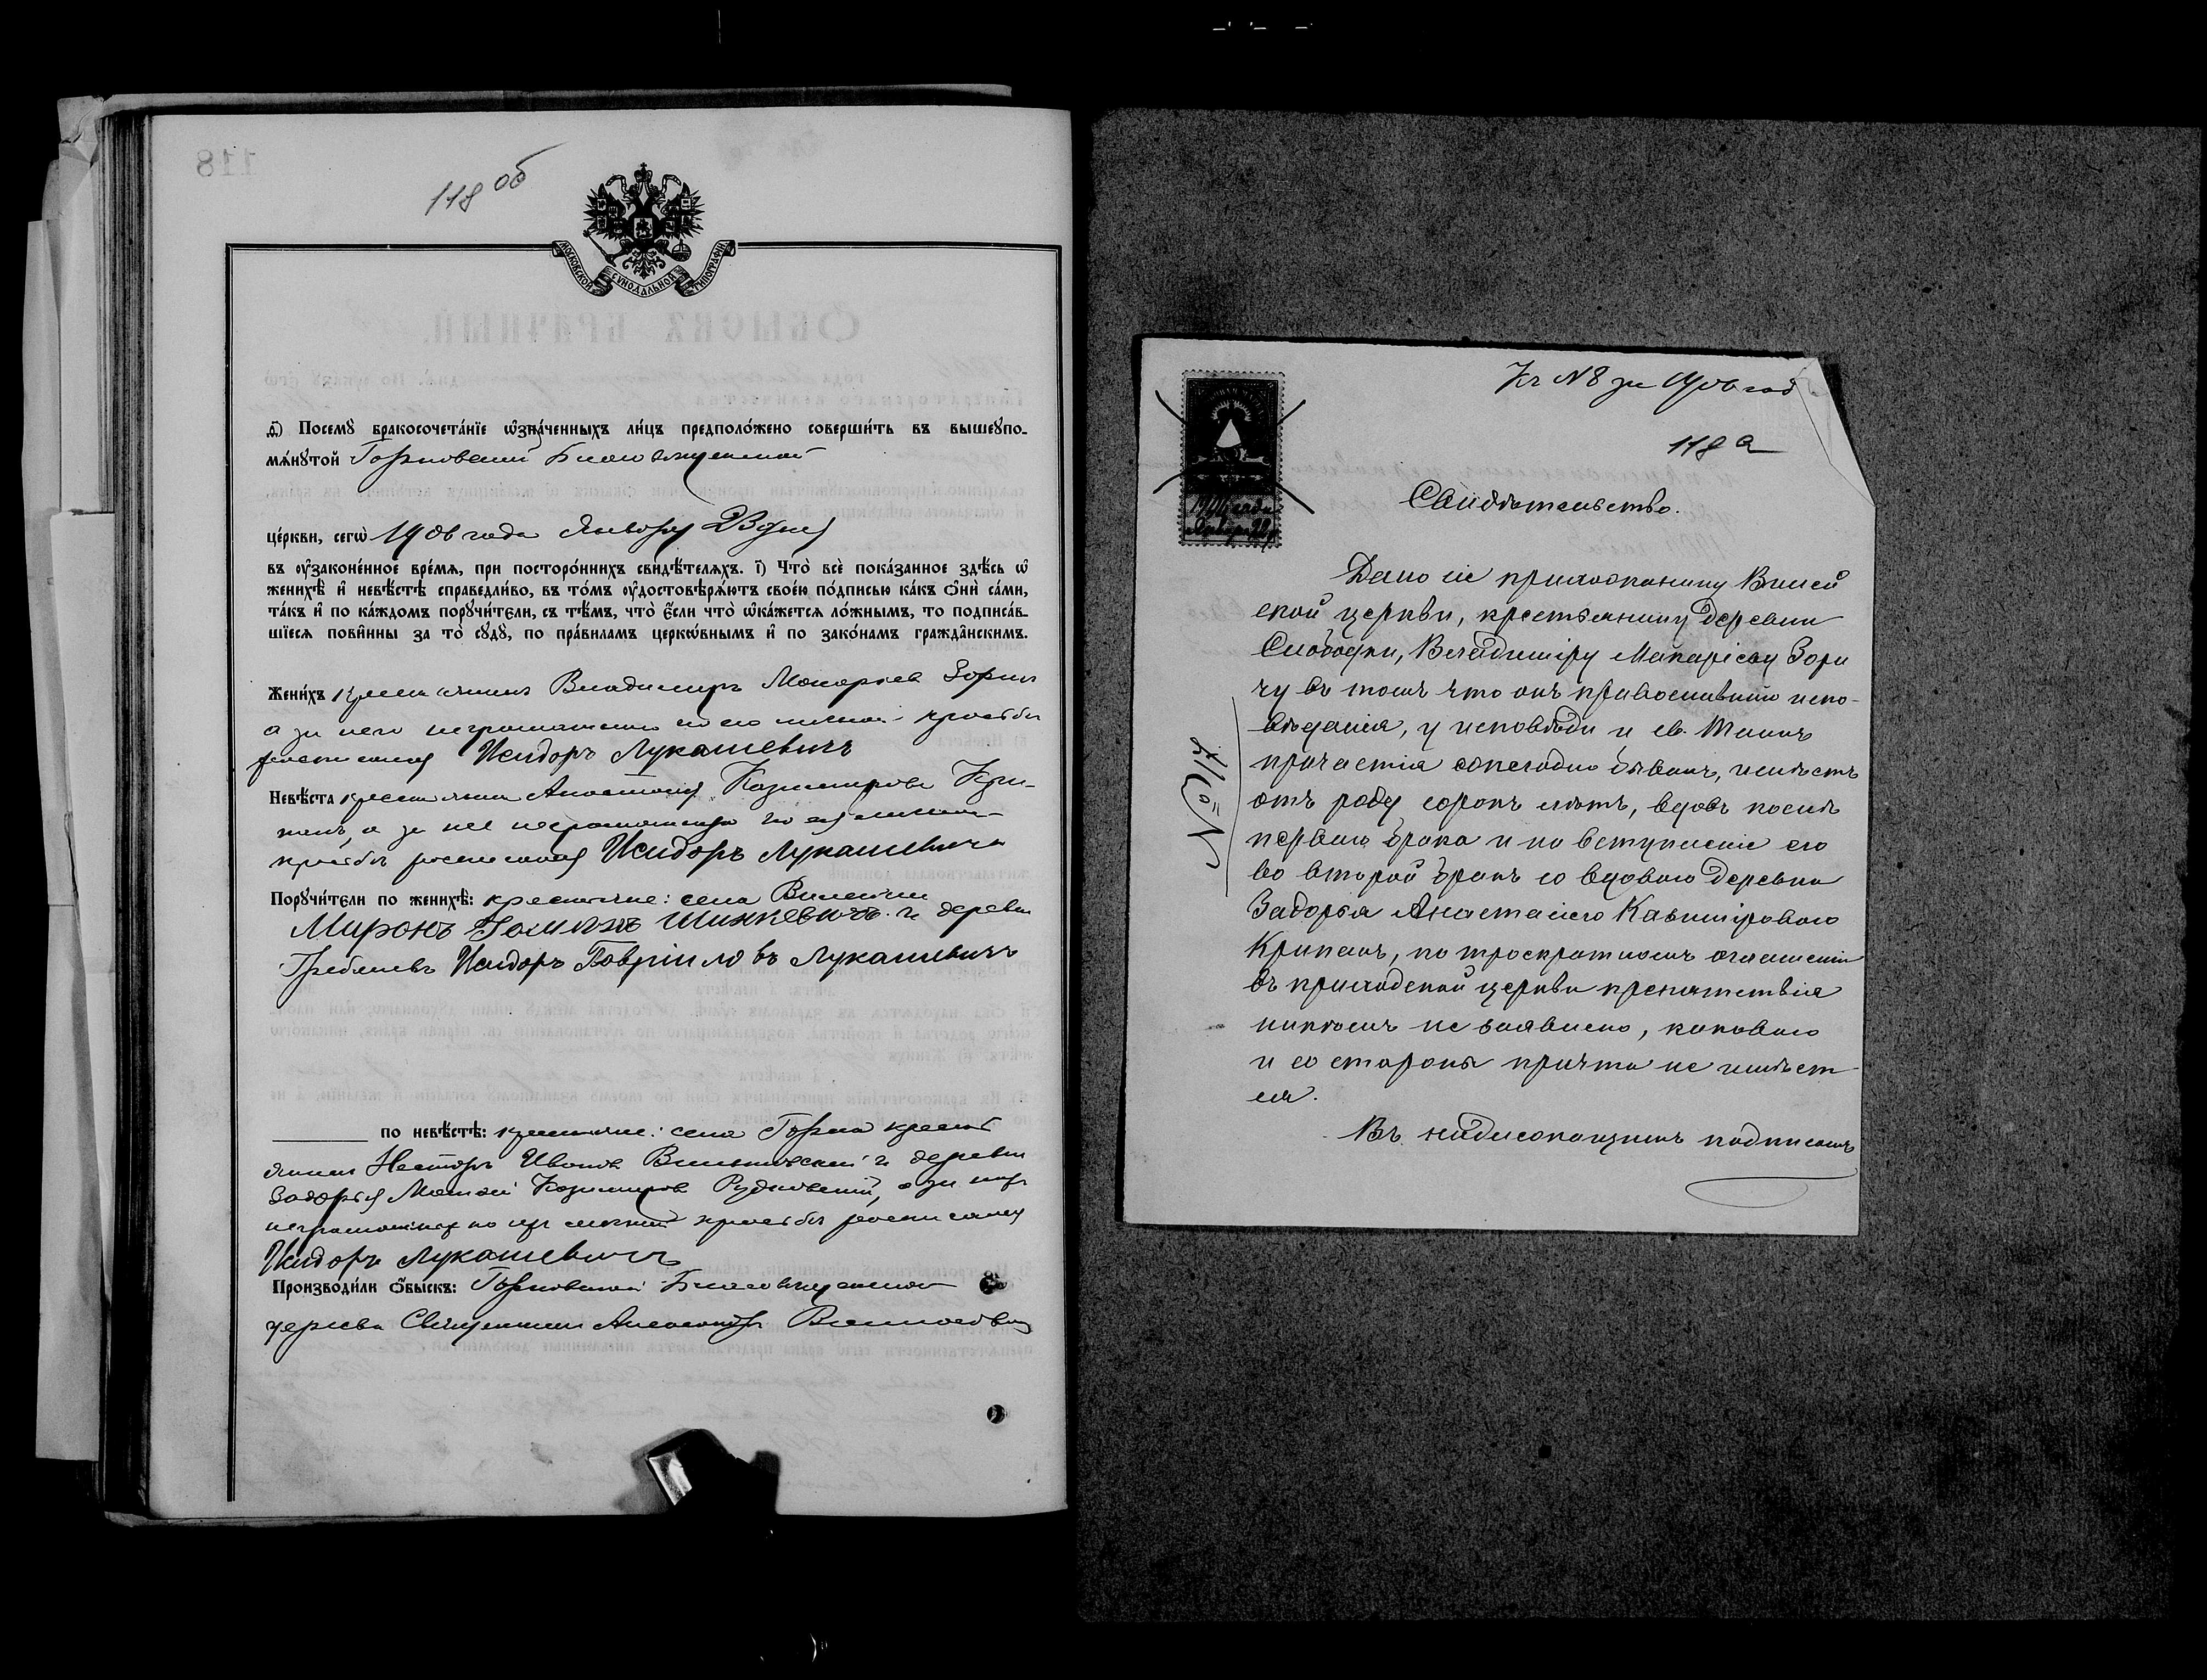 118 об
МОСКОВСКОЙ СѴНОДАЛЬНОЙ ТИПОГРАФІИ
д҃) Посемꙋ̀ бракосочета́нїе ѡ҆зна́ченныхъ ли́цъ предполо́жено соверши́ть въ вышеꙋпо-
мѧ́нꙋтой Горновской Благовѣщенской
це́ркви, сегѡ̀ 1906 года Январу 23 дня
въ ᲂу҆законе́нное вре́мѧ, при посторо́ннихъ свидѣ́телѧхъ. і҃) Что̀ всѐ пока́занное здѣ́сь ѡ҆
женихѣ̀ и҆ невѣ́стѣ справедли́во, въ то́мъ ᲂу҆достовѣрѧ́ютъ свое́ю по́дписью ка́къ ѻ҆нѝ са́ми,
та́къ и҆ по ка́ждомъ порꙋчи́тели, съ тѣ́мъ, что̀ є҆́сли что̀ ѡ҆ка́жетсѧ ло́жнымъ, то подписа́в-
шїесѧ пови́нны за то̀ сꙋдꙋ̀, по пра́виламъ церко́внымъ и҆ по зако́намъ гражда́нскимъ.
Жени́хъ крестьянинъ Владимиръ Макарьев Зорич
а за него неграмотного по его личной просьбе
росписался Исидоръ Лукашевичъ
Невѣ́ста крестьянка Анастасия Казимирова Кри-
пань, а за нее неграмотную по ея личной
просьбе росписался Исидоръ Лукашевичъ
Порꙋчи́тели по женихѣ̀: крестьяне: села
Миронъ Шинкевичъ и деревни
Гребеневъ Исидоръ Гавріиловъ Лукашевичъ
по невѣ́стѣ: крестьяне: села Горна кресть
янин Несторъ Иванов и деревни
Задорья Матвей Казимиров Рудковский, а за них
неграмотных по их личной просьбе росписался
Исидоръ Лукашевичъ
Производи́ли ѻ҆́быскъ: Горновской Благовѣщенской
церкви Священник Александръ
Къ N 8 за 1906 год
118 а
1906 года
Января 22 д
Свидѣтельство.
Дано сіе прихожанину Вилей
ской церкви, крестьянину деревни
Слободки, Владиміру Макаріеву Зори
чу въ томъ что онъ православнаго испо-
вѣданія, у исповѣди и св. Таинъ
причастія ежегодно бывалъ, имѣетъ
отъ роду сорокъ лѣтъ, вдовъ послѣ
перваго брака и на вступленіе его
во второй бракъ со вдовою деревни
Задорья Анастасіею Казиміровою
Крипань, по троекратномъ оглашеніи
въ приходской церкви препятствія
никѣмъ не заявлено, каковаго
и со стороны причта не имѣет
ся.
Въ надлежащемъ подписомъ